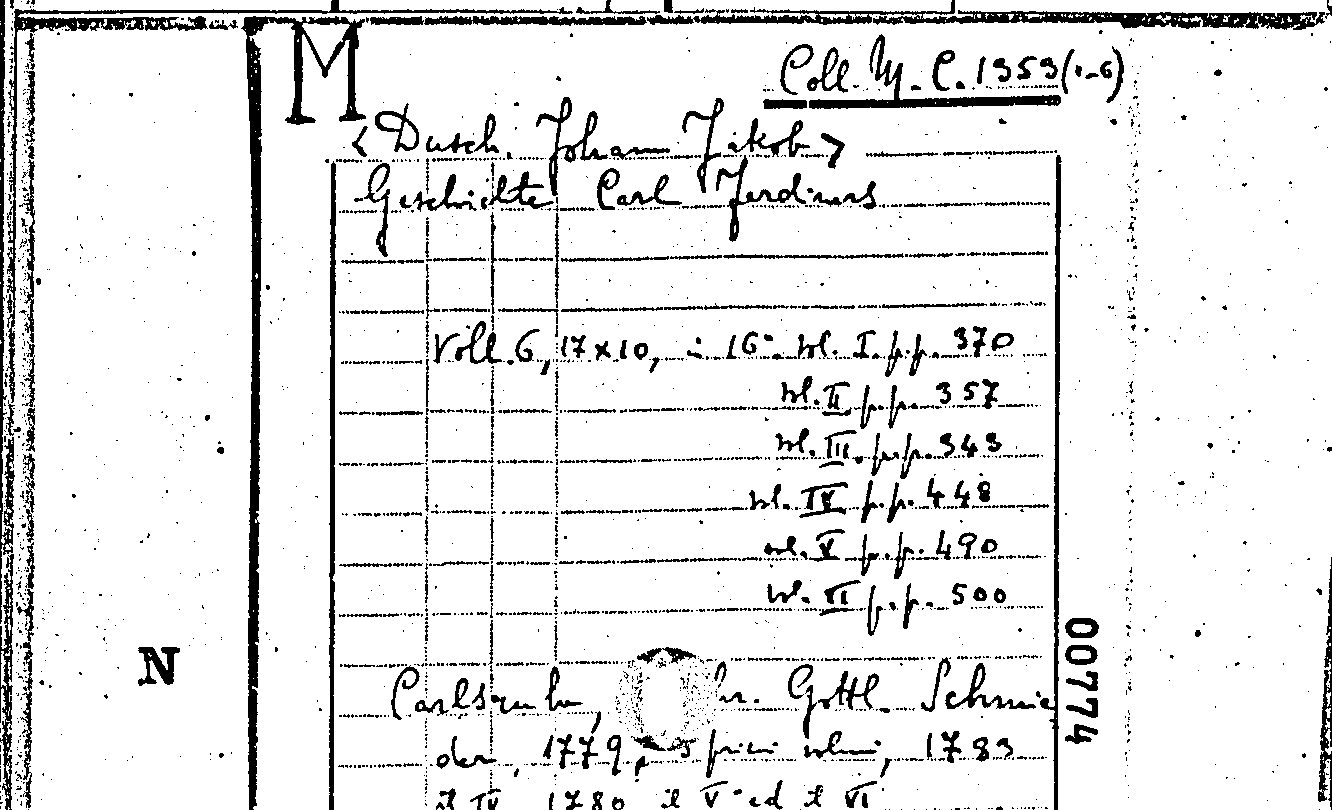 M
Coll. M. C. 1353 (1-6)
< Dusch. Johann Jakob >
Geschichte Carl Ferdiners
Voll. 6, 17x10, in 16°. vol. I. p.p. 370
vol. II p.p. 357
vol. III. p.p. 343
vol. IV p.p. 448
vol. V p.p. 490
vol. VI p.p. 500
N
007774
Carlsruhe, Gottl. Schmie
der, 1779, primi volumi, 1783
il IV, 1780 il V° ed il VI